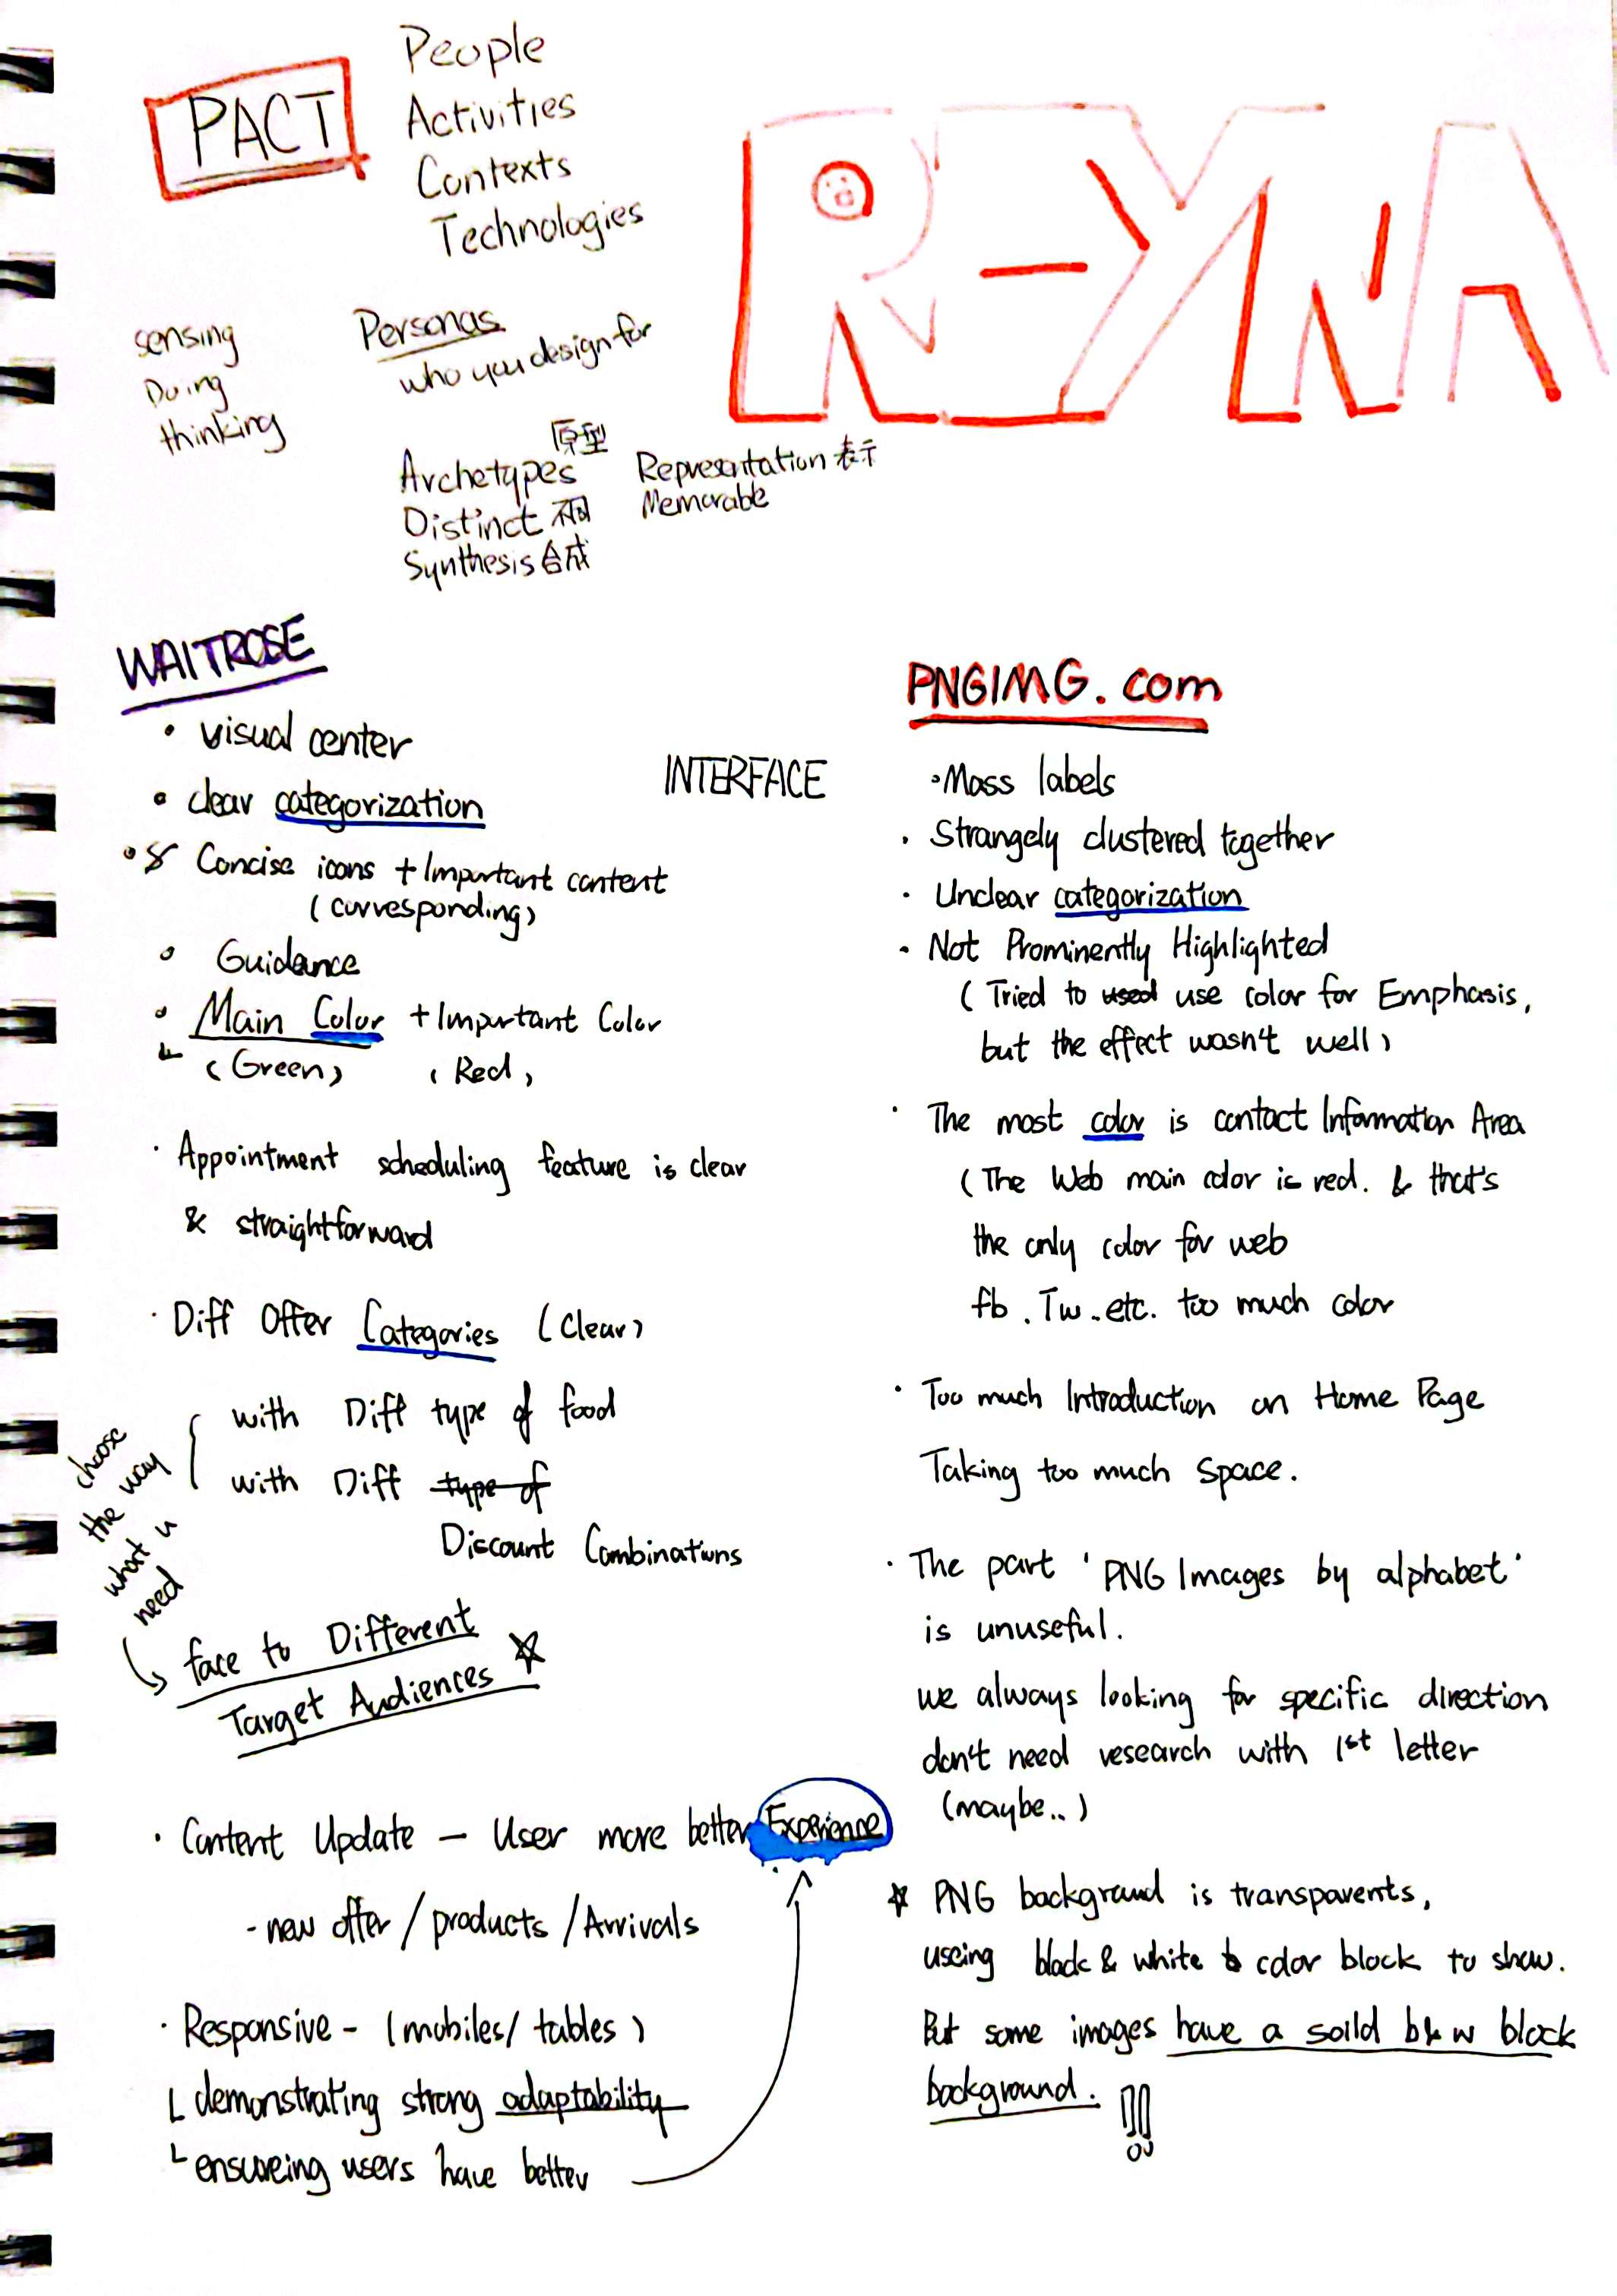 PACT
People
Activities
Contexts
Technologies
REYNA
sensing
Doing
thinking
Personas
who you design for
原型
Archetypes
Distinct 不同
Synthesis 合成
Representation 表示
Memorable
WAITROSE
• visual center
• clear categorization
• & Concise icons + Important content
(corresponding)
• Guidance
• Main Color + Important Color
(Green) (Red)
· Appointment scheduling feature is clear
& straightforward
· Diff Offer Categories (Clear)
with Diff type of food
with Diff type of
Discount Combinations
choose
the way
what u
need
face to Different
Target Audiences ☆
· Content Update – User more better Experience
- new offer / products / Arrivals
· Responsive - (mobiles/ tables)
demonstrating strong adaptability
ensureing users have better
INTERFACE
PNGIMG.com
• Mass labels
· Strangely clustered together
· Unclear categorization
· Not Prominently Highlighted
(Tried to used use color for Emphasis,
but the effect wasn't well)
· The most color is contact Information Area
(The Web main color is red. & that's
the only color for web
fb. Tw. etc. too much color
· Too much Introduction on Home Page
Taking too much Space.
· The part 'PNG Images by alphabet'
is unuseful.
we always looking for specific direction
don't need research with 1st letter
(maybe..)
☆ PNG background is transparents,
useing black & white color block to show.
But some images have a soild b&w block
background. !!!